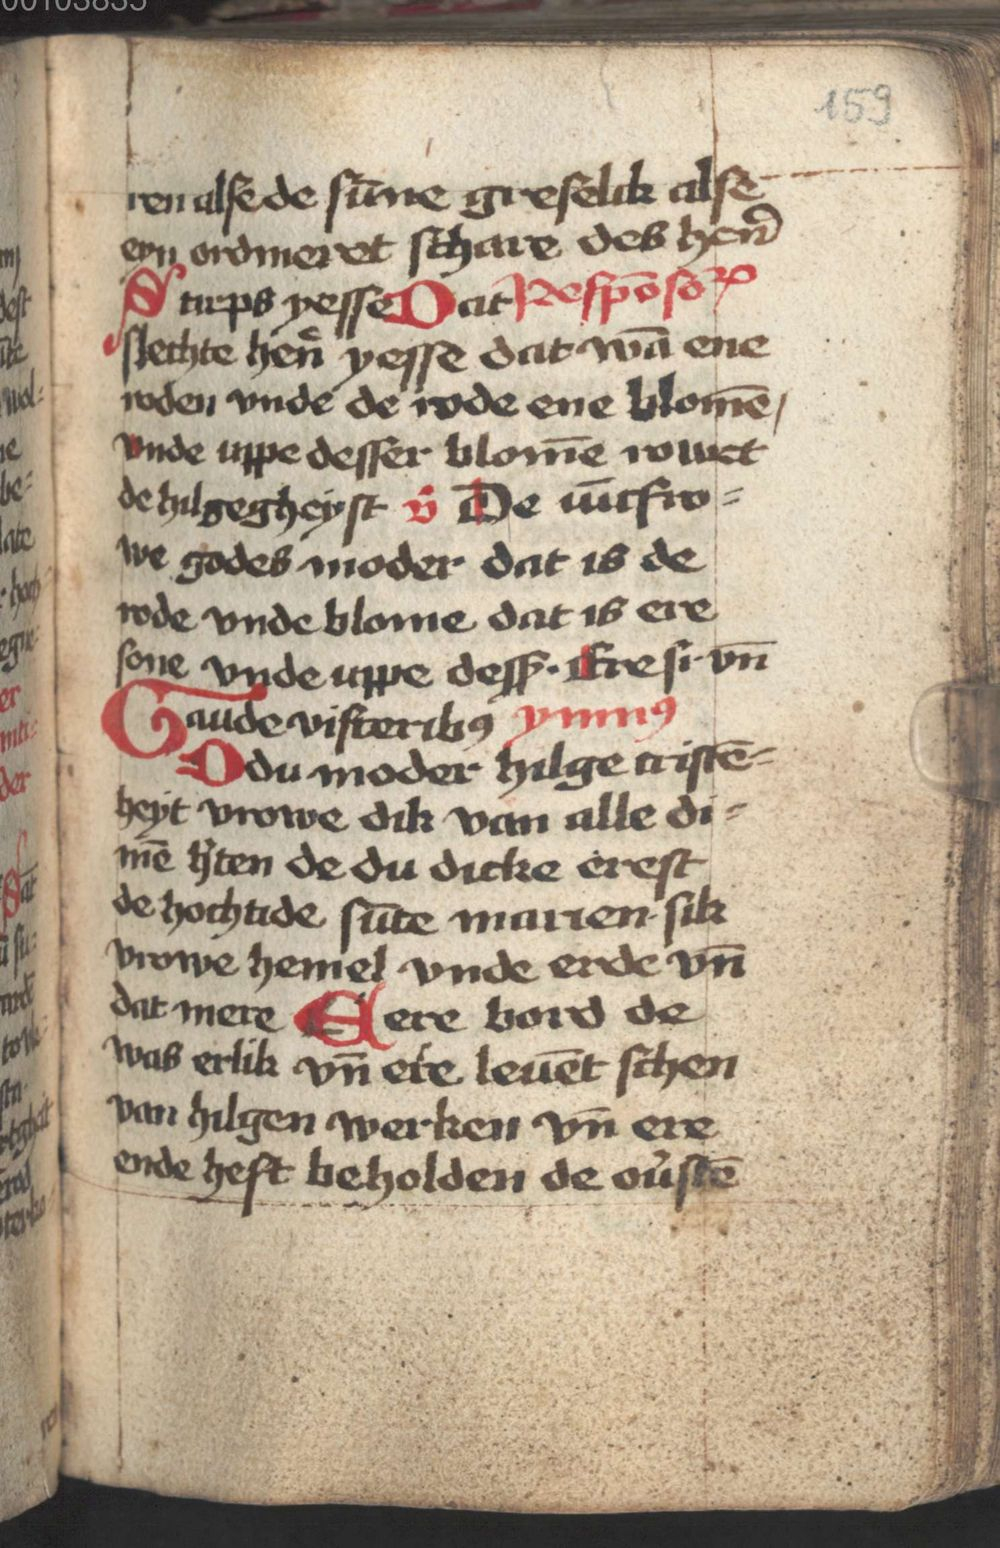 159
ren alse de sūne greselik alse
eyn ordineret schare des hen᷑
Stirps yesse Dat Respōsoꝝ
slechte hen᷑ yesse dat wā ene
roden vnde de rode ene blome᷑
vnde uppe desser blome᷑ rowet
de hilgegheyst v̄ De iūcfro-
we godes moder dat is de
rode vnde blome dat is ere
sone vnde uppe dess᷑. Ere si vn̄
Gaude visceribꝰ ymnꝰ
O du moder hilge cristē-
heyt vrowe dik van alle di-
mē h᷑ten de du dicke erest
de hochtide sūte marien sik
vrowe hemel vnde erde vn̄
dat mere Eere bord de
was erlik vn̄ ere leuēt schen
van hilgen werken vn̄ ere
ende heft beholden de ou᷑stē